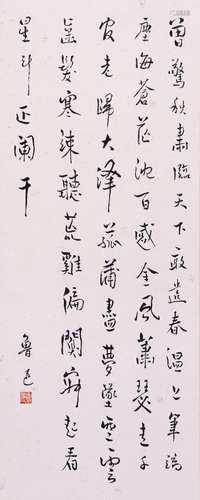 曾驚秋肅臨天下敢遣春溫上筆端
塵海蒼茫沈百感金風蕭瑟走千
官老歸大澤菰蒲盡夢墜空雲
齒髮寒竦聽荒雞偏闃寂起看
星斗正闌干
魯迅